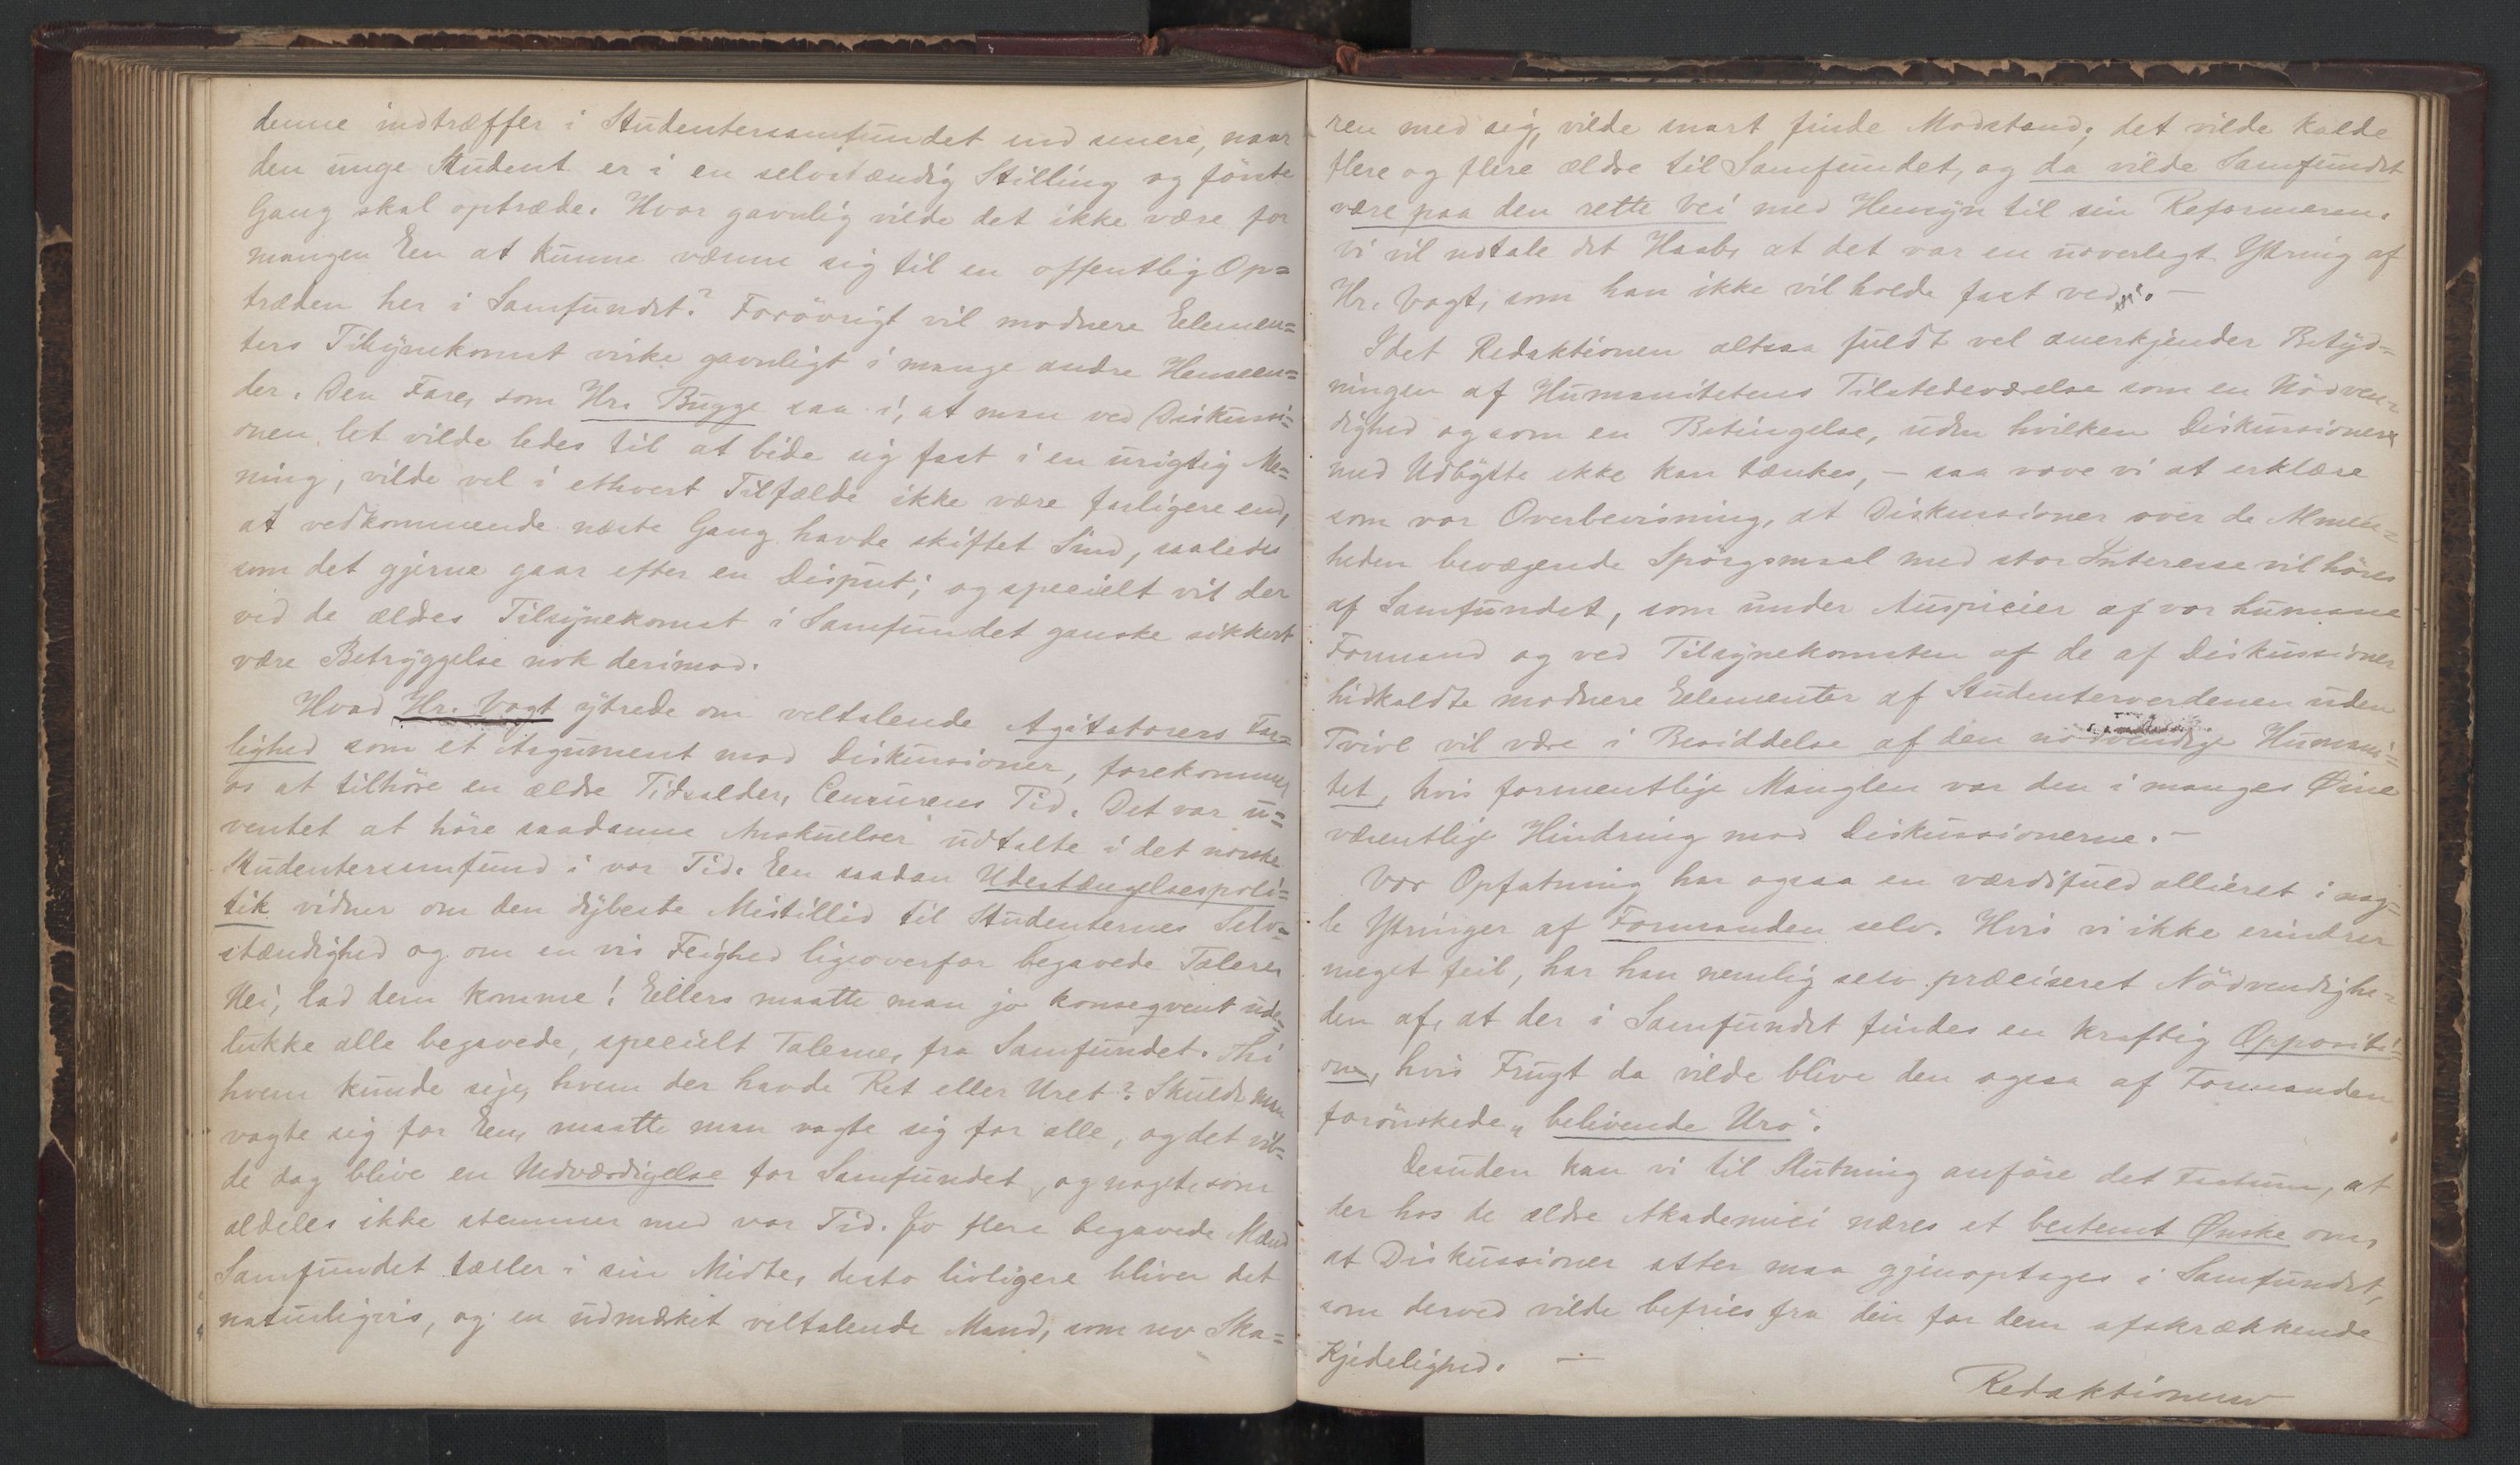 denne indtræffer i Studentersamfundet end senere, naar
den unge Student er i en selvstændig Stilling og förste
Gang skal optræde. Hvor gavnlig vilde det ikke være for
mangen Een at kunne vænne sig til en offentlig Op=
træden her i Samfundet? Forövrigt vil modnere Elemen=
ters Tilsynekomst virke gavnligt i mange andre Henseen=
der. Den Fare, som Hr. Bugge saa i, at man ved Diskussi=
onen let vilde ledes til at bide sig fast i en urigtig Me=
ning, vilde vel i ethvert Tilfælde ikke være farligere end,
at vedkommende næste Gang havde skiftet Sind, saaledes
som det gjerne gaar efter en Disput; og specielt vil der
ved de ældres Tilsynekomst i Samfundet ganske sikkert
være Betryggelse nok derimod.
Hvad Hr. Vogt ytrede om veltalende Agitatorers Far=
lighed som et Argument mod Diskussioner, forekommer
os at tilhöre en ældre Tidsalder, Censurens Tid. Det var u=
ventet at höre saadanne Anskuelser udtalte i det norske
Studentersamfund i vor Tid. Een saadan Udestængelsespoli=
tik vidner om den dybeste Mistillid til Studenternes Selv=
stændighed og om en vis Feighed ligeoverfor begavede Talere.
Nei, lad dem komme! Ellers maatte man jo konseqvent ude=
lukke alle begavede, specielt Talerne, fra Samfundet. Thi
hvem kunde sige, hvem der havde Ret eller Uret? Skulde man
vogte sig for Een, maatte man vogte sig for alle, og det vil=
de dog blive en Nedværdigelse for Samfundet, og noget, som
aldeles ikke stemmer med vor Tid. Jo flere begavede Mænd
Samfundet tæller i sin Midte, desto livligere bliver det
naturligvis, og en udmærket veltalende Mand, som rev Ska=
ren med sig, vilde snart finde Modstand; det vilde kalde
flere og flere ældre til Samfundet, og da vilde Samfundet
være paa den rette Vei med Hensyn til sin Reformeren.
Vi vil udtale det Haab, at det var en uoverlagt Ytring af
Hr. Vogt, som han ikke vil holde fast ved. —
Idet Redaktionen altsaa fuldt vel anerkjender Betyd=
ningen af Humanitetens Tilstedeværelse som en Nödven=
dighed og som en Betingelse, uden hvilken Diskussioner
med Udbytte ikke kan tænkes, — saa vove vi at erklære
som vor Overbevisning, at Diskussioner over de Almen=
heden bevægende Spörgsmaal med stor Interesse vil höres
af Samfundet, som under Auspicier af vor humane
Formand og ved Tilsynekomsten af de af Diskussioner
hidkaldte modnere Elementer af Studenterverdenen uden
Tvivl vil være i Besiddelse af den nödvendige Humani=
tet, hvis formentlige Manglen var den i manges Øine
væsentlige Hindring mod Diskussionerne. —
Vor Opfatning har ogsaa en værdifuld allieret i nog=
le Ytringer af Formanden selv. Hvis vi ikke erindrer
meget feil, har han nemlig selv præciseret Nödvendighe=
den af, at der i Samfundet findes en kraftig Oppositi=
on, hvis Frugt da vilde blive den ogsaa af Formanden
forönskede „belivende Uro".
Desuden kan vi til Slutning anföre det Factum, at
der hos de ældre Akademici næres et bestemt Ønske om,
at Diskussioner atter maa gjenoptages i Samfundet,
som derved vilde befries fra den for dem afskrækkende
Kjedelighed. —
Redaktionen